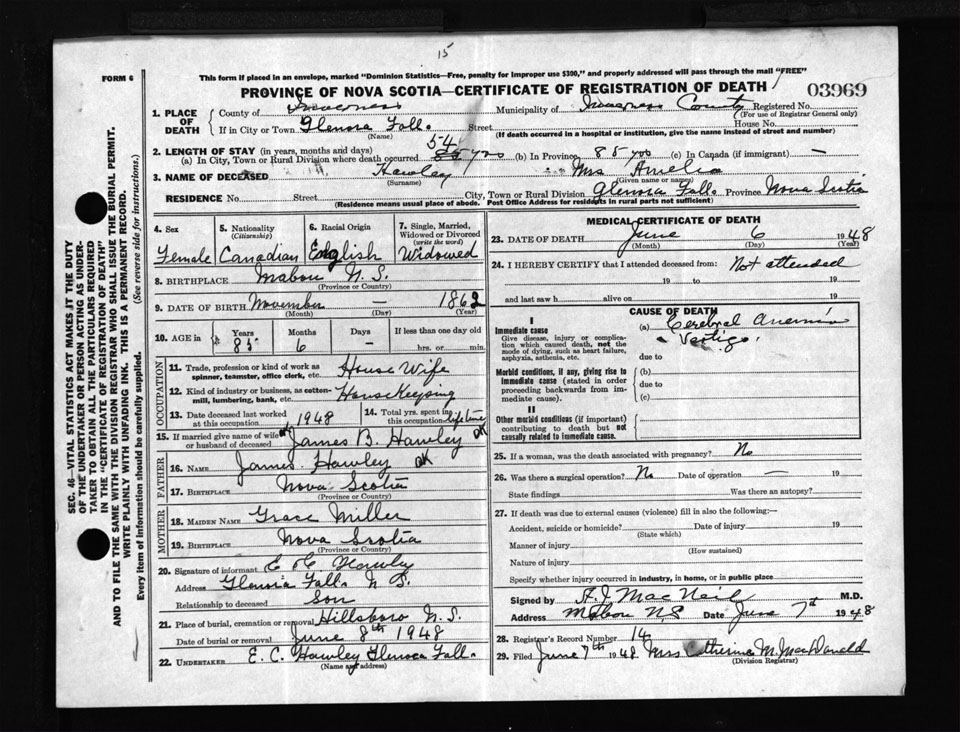 15
FORM 6
This form if placed in an envelope, marked "Dominion Statistics—Free, penalty for improper use $300," and properly addressed will pass through the mail "FREE"
PROVINCE OF NOVA SCOTIA—CERTIFICATE OF REGISTRATION OF DEATH
03969
1. PLACE OF DEATH County of Inverness Municipality of Inverness County Registered No.
(For use of Registrar General only)
If in City or Town Glenora Falls Street House No.
(Name) (If death occurred in a hospital or institution, give the name instead of street and number)
2. LENGTH OF STAY (in years, months and days)
(a) In City, Town or Rural Division where death occurred 54 yrs (b) In Province 85 yrs (c) In Canada (if immigrant) —
3. NAME OF DECEASED Hawley Mrs Amelia
(Surname) (Given name or names)
RESIDENCE No. Street City, Town or Rural Division Glenora Falls Province Nova Scotia
(Residence means usual place of abode. Post Office Address for residents in rural parts not sufficient)
4. Sex
5. Nationality (Citizenship)
6. Racial Origin
7. Single, Married, Widowed or Divorced (write the word)
Female Canadian English Widowed
8. BIRTHPLACE Mabou N.S.
(Province or Country)
9. DATE OF BIRTH November — 1862
(Month) (Day) (Year)
10. AGE in Years Months Days If less than one day old
85 6 — hrs. or min.
OCCUPATION
11. Trade, profession or kind of work as spinner, teamster, office clerk, etc. House Wife
12. Kind of industry or business, as cotton-mill, lumbering, bank, etc. House Keeping
13. Date deceased last worked at this occupation 1948
14. Total yrs. spent in this occupation lifetime
15. If married give name of wife or husband of deceased James B. Hawley OK
FATHER
16. NAME James Hawley OK
17. BIRTHPLACE Nova Scotia
(Province or Country)
MOTHER
18. MAIDEN NAME Grace Miller
19. BIRTHPLACE Nova Scotia
(Province or Country)
20. Signature of informant E C Hawley
Address Glenora Falls N S.
Relationship to deceased Son
21. Place of burial, cremation or removal Hillsboro N.S.
Date of burial or removal June 8th 1948
22. UNDERTAKER E. C. Hawley Glenora Falls
(Name and address)
MEDICAL CERTIFICATE OF DEATH
23. DATE OF DEATH June 6 1948
(Month) (Day) (Year)
24. I HEREBY CERTIFY that I attended deceased from: Not attended
19 to 19
and last saw h alive on 19
CAUSE OF DEATH
I
Immediate cause (a) Cerebral Anemia
Give disease, injury or complication which caused death, not the mode of dying, such as heart failure, asphyxia, asthenia, etc.
Vertigo.
due to
Morbid conditions, if any, giving rise to immediate cause (stated in order proceeding backwards from immediate cause).
(b)
due to
(c)
II
Other morbid conditions (if important) contributing to death but not causally related to immediate cause.
25. If a woman, was the death associated with pregnancy? No
26. Was there a surgical operation? No Date of operation — 19
State findings Was there an autopsy?
27. If death was due to external causes (violence) fill in also the following:—
Accident, suicide or homicide? Date of injury 19
(State which)
Manner of injury
(How sustained)
Nature of injury
Specify whether injury occurred in industry, in home, or in public place
Signed by A. J. MacNeil M.D.
Address Mabou N.S Date June 7th 1948
28. Registrar's Record Number 14
29. Filed June 7th 1948 Mrs Catherine M. MacDonald
(Division Registrar)
SEC. 46—VITAL STATISTICS ACT MAKES IT THE DUTY
OF THE UNDERTAKER OR PERSON ACTING AS UNDERTAKER TO OBTAIN ALL THE PARTICULARS REQUIRED
IN THE "CERTIFICATE OF REGISTRATION OF DEATH"
AND TO FILE THE SAME WITH THE DIVISION REGISTRAR WHO SHALL ISSUE THE BURIAL PERMIT.
WRITE PLAINLY WITH UNFADING INK. THIS IS A PERMANENT RECORD.
Every item of information should be carefully supplied. (See reverse side for instructions.)